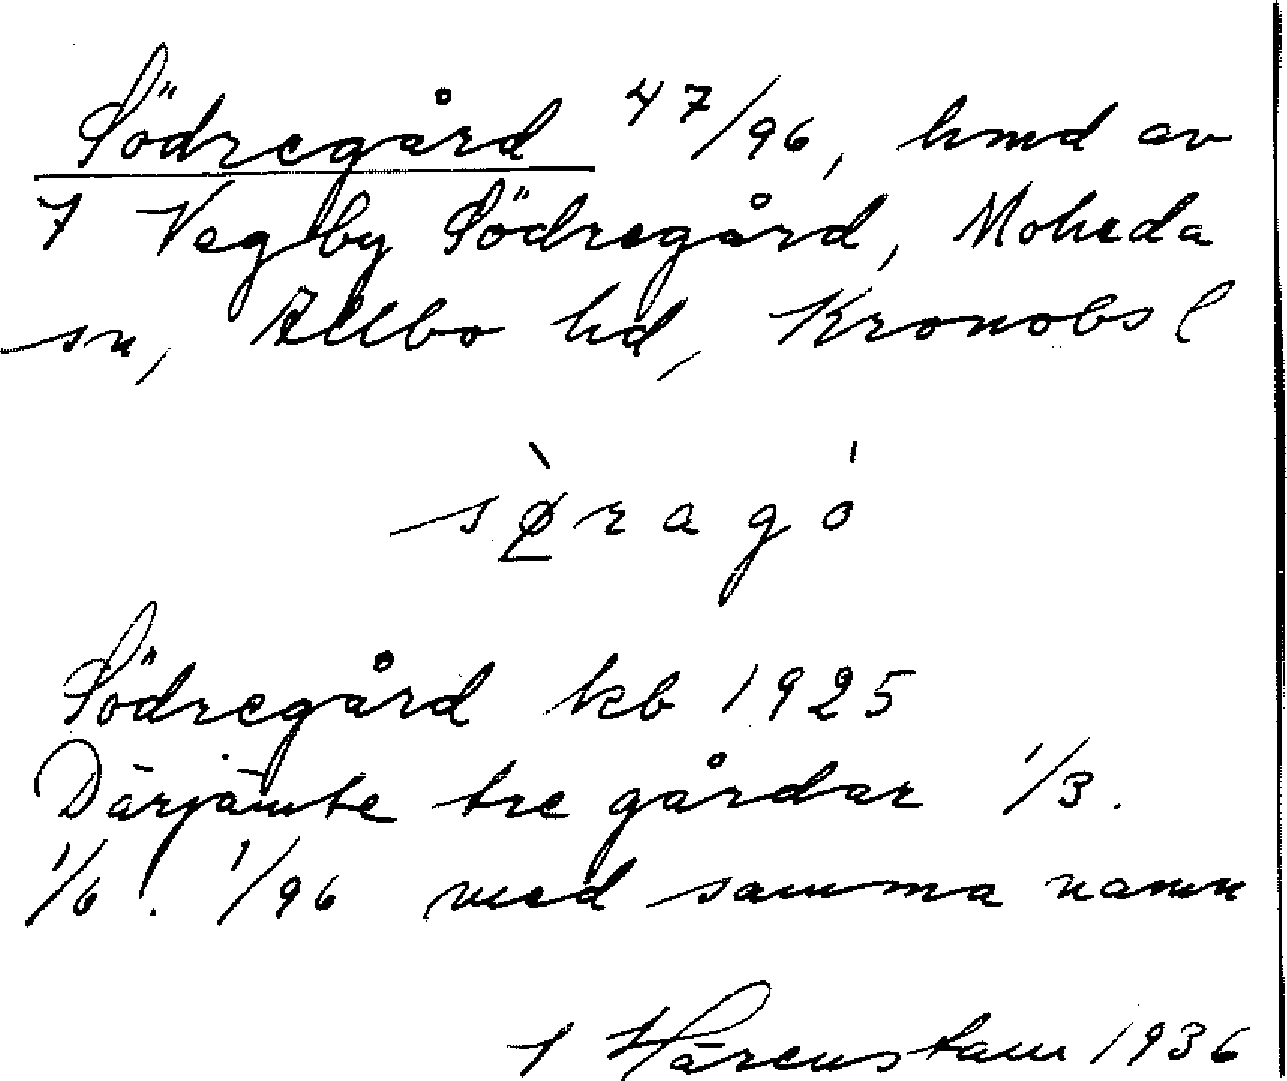 Södregård 47/96, hmd av
1 Vegby Södregård, Moheda
sn, Allbo hd, Kronobs l
sø̀ragó
Södregård kb 1925
Därjämte tre gårdar 1/3.
1/6. 1/96 med samma namn
I Härenstam 1936